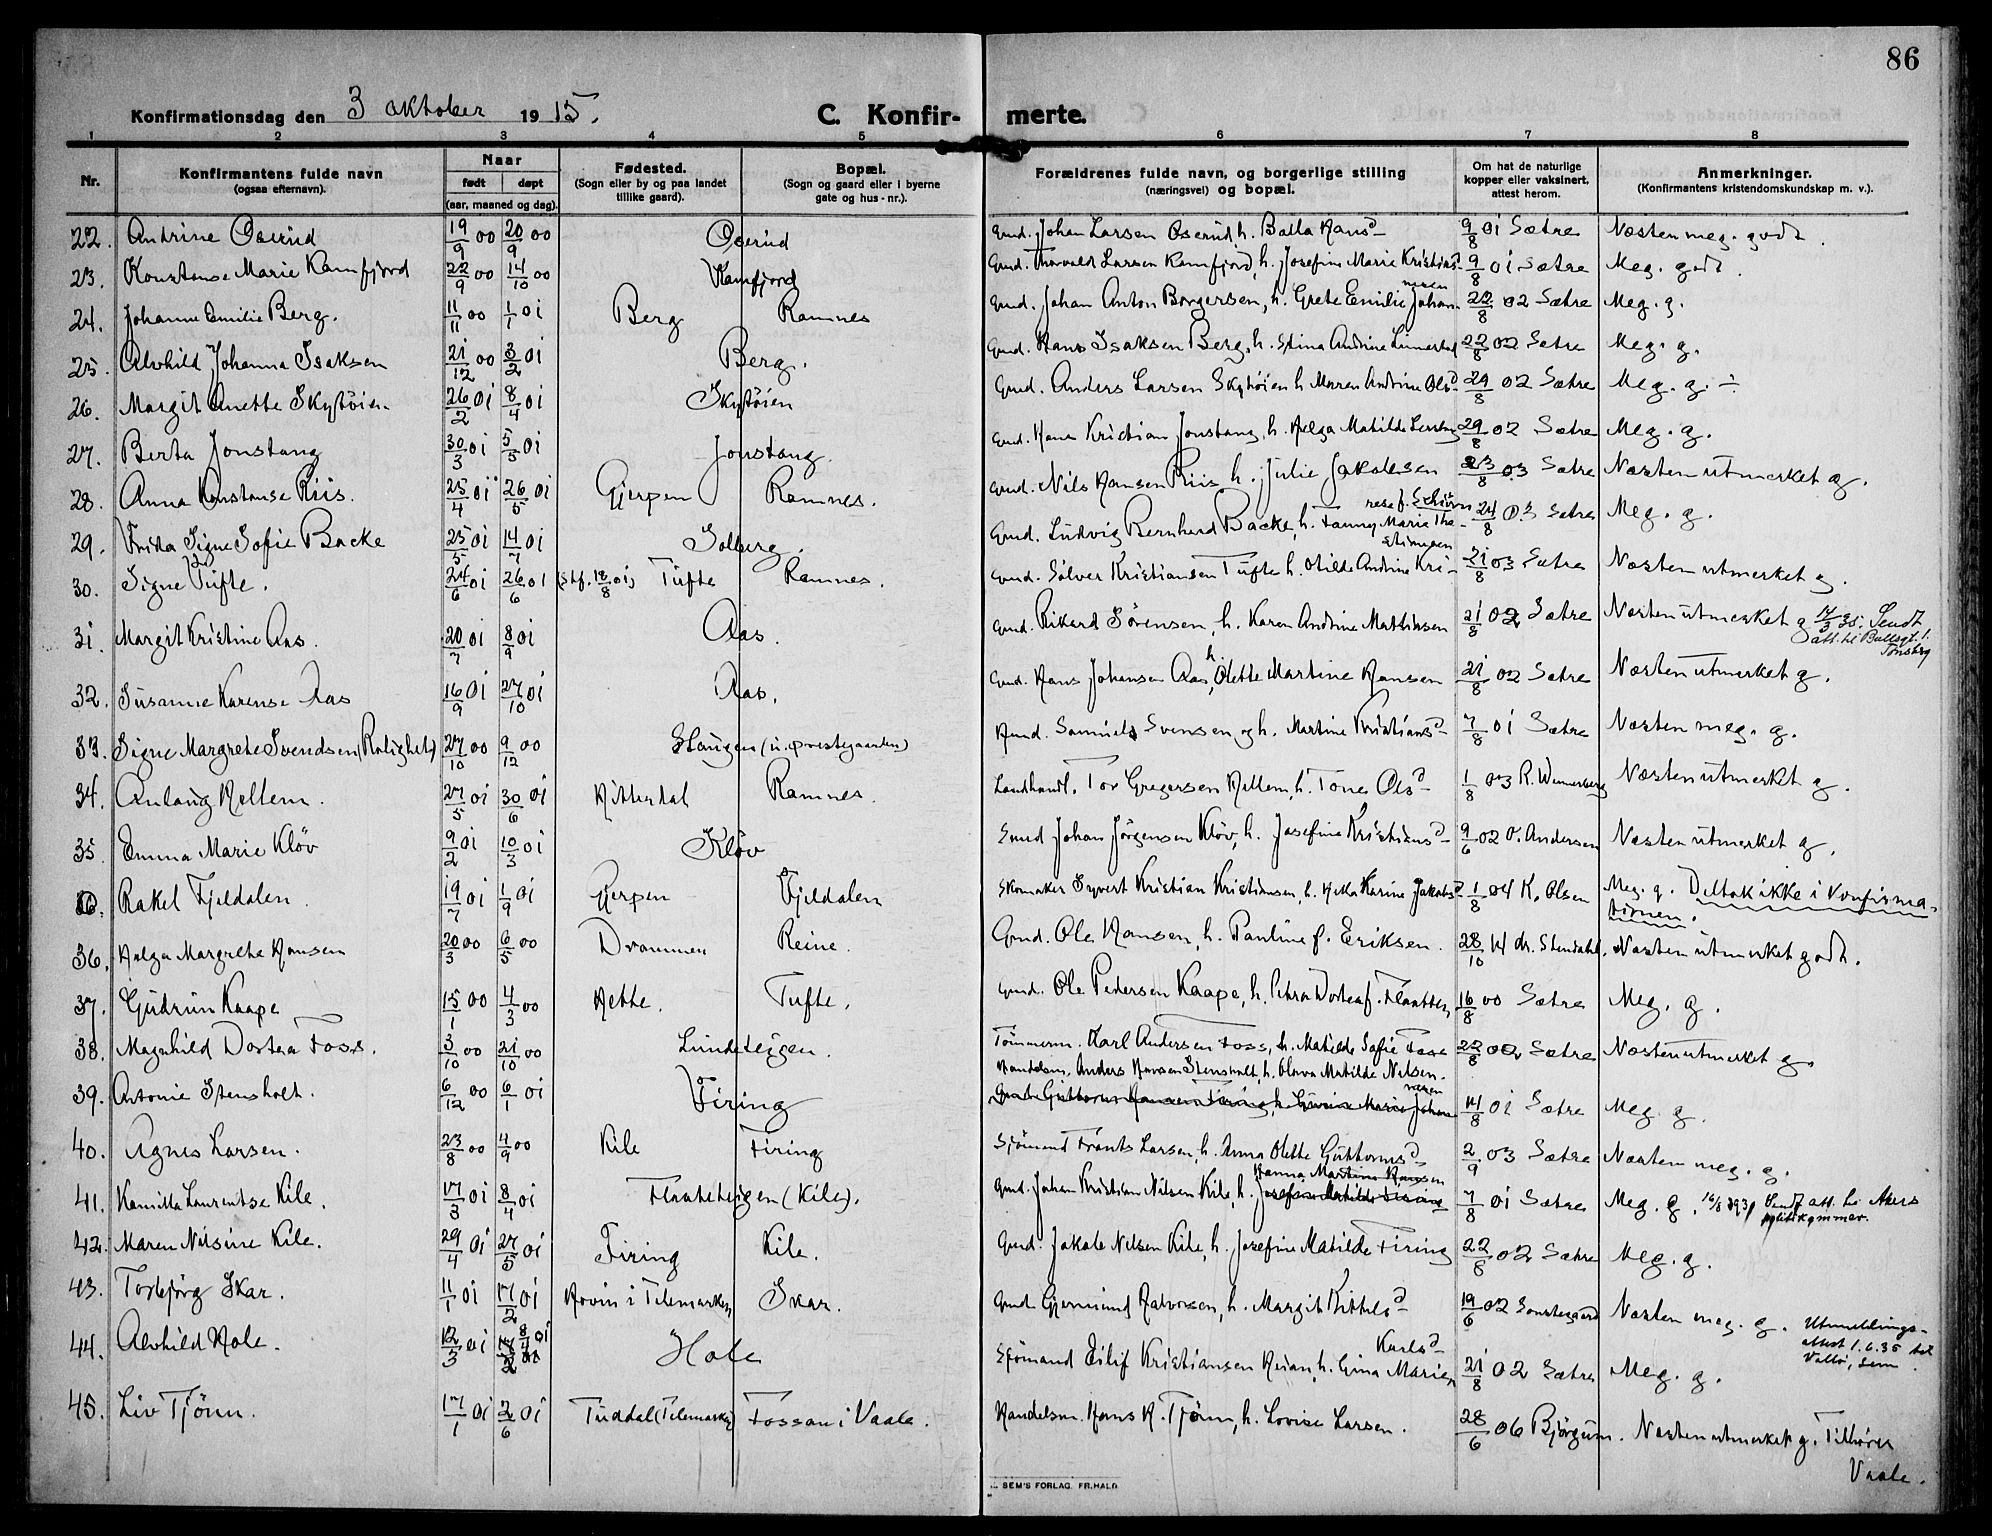 86
Konfirmationsdag den 3 oktober 1915.
C. Konfir- merte.
1 2 3 4 5 6 7 8
Nr. Konfirmantens fulde navn (ogsaa efternavn). Naar født døpt (aar, maaned og dag). Fødested. (Sogn eller by og paa landet tillike gaard). Bopæl. (Sogn og gaard eller i byerne gate og hus-nr.). Forældrenes fulde navn, og borgerlige stilling (næringsvei) og bopæl. Om hat de naturlige kopper eller vaksinert, attest herom. Anmerkninger. (Konfirmantens kristendomskundskap m. v.).
22. Andrine Oserud 19/9 00 20/9 00 Oserud Gmd. Johan Larsen Oserud, h. Balla Hansd 9/8 01 Sætre Næsten meg. godt.
23. Konstanse Marie Kamfjord 22/9 00 14/10 00 Kamfjord Gmd. Thorvald Larsen Kamfjord, h. Josefine Marie Kristiansd 9/8 01 Sætre Meg. godt.
24. Johanne Emilie Berg. 11/11 00 1/1 01 Berg Ramnes Gmd. Johan Anton Borgersen, h. Grete Emilie Johannesen 22/8 02 Sætre Meg. g.
25. Alvhild Johanna Isaksen 21/12 00 3/2 01 Berg. Gmd. Hans Isaksen Berg, h. Stina Andrine Linnestad 22/8 02 Sætre Meg. g.
26. Margit Anette Skytøien. 26/2 01 8/4 01 Skytøien Gmd. Anders Larsen Skytøien h. Maren Andrine Olsd 29/8 02 Sætre Meg. g. ÷
27. Berta Jonstang 30/3 01 5/5 01 Jonstang. Gmd. Hans Kristian Jonstang, h. Helga Matilde 29/8 02 Sætre Meg. g.
28. Anna Konstanse Riis. 25/4 01 26/5 01 Gjerpen Ramnes. Gmd. Nils Hansen Riis h. Julie Jakobsen 23/8 03 Sætre Næsten utmerket g.
29. Frida Signe Sofie Backe 25/5 01 14/7 01 Solberg. Gmd. Ludvig Bernhard Backe, h. Fanny Marie Therese f. Schiörn 24/8 03 Sætre Meg. g.
30. Signe Tufte. 24/6 01 26/6 01 (Stf. 18/8 01) Tufte Ramnes. Gmd. Sølver Kristiansen Tufte h. Otilde Andrine Kristiansen 21/8 03 Sætre Næsten utmerket g.
31. Margit Kristine Aas. 20/7 01 8/9 01 Aas. Gmd. Rikard Sørensen, h. Karen Andrine Mathisen 21/8 02 Sætre Næsten utmerket g. 14/3 35. Sendt att. til Bullsgt. 1. Tønsberg
32. Susanne Karense Aas 16/9 01 27/10 01 Aas. Gmd. Hans Johansen Aas, h. Olette Martine Hansen 21/8 02 Sætre Næsten utmerket g.
33. Signe Margrete Svendsen (Rolighet) 27/10 00 9/12 00 Slaugen (u. prestegaarden) Hmd. Samuel Svensen og h. Martine Kristiansd 7/8 01 Sætre Næsten meg. g.
34. Anlaug Hellem. 27/5 01 30/6 01 Hitterdal Ramnes. Landhandl. Tor Gregersen Hellem, h. Tone Olsd 1/8 03 R. Wennerberg Næsten utmerket g.
35 Emma Marie Kløv 9/2 01 10/3 01 Kløv Gmd Johan Jørgensen Kløv, h. Josefine Kristiansd 9/6 02 O. Andersen Næsten utmerket g.
Rakel Fjeldalen. 19/7 01 1/9 01 Gjerpen Fjeldalen Skomaker Syvert Kristian Kristiansen, h. Karine Jakobsd 1/8 04 K. Olsen Meg. g. Deltok ikke i konfirmationen.
36. Helga Margrethe Hansen 20/3 00 6/5 00 Drammen Reine. Gmd. Ole Hansen, h. Pauline f. Eriksen. 28/10 14 dr. Stendahl. Næsten utmerket godt.
37. Gudrun Kaape 15/1 00 4/3 00 Hette. Tufte. Gmd. Ole Pedersen Kaape, h. Petra Dortea f. Flaatten 16/8 00 Sætre Meg. g.
38. Magnhild Dortea Foss. 3/10 00 21/10 00 Lindeteigen. Tømmerm. Karl Andersen Foss, h. Matilde Sofie Foss 22/8 02 Sætre Næsten utmerket g.
39. Antonie Stensholt. 6/12 00 6/1 01 Firing Handelsm. Anders Hansen Stensholt, h. Olava Matilde Nilsen. 14/8 01 Sætre Meg. g.
40. Agnes Larsen. 23/8 00 4/9 00 Kile Firing Sjømand Frants Larsen, h. Anna Olette Guttormsd 2/9 03 Sætre Næsten meg. g.
41. Kamilla Laurentse Kile. 17/3 01 8/4 01 Flaateteigen (Kile). Gmd. Johan Kristian Nilsen Kile, h. Hanna Martine Hansen 7/8 01 Sætre Meg. g. 16/8 1939 Sendt att. til Akers politikammer.
42. Maren Nilsine Kile. 29/4 01 27/5 01 Firing Kile. Gmd. Jakob Nilsen Kile, h. Josefine Matilde Firing 22/8 02 Sætre Meg. g.
43. Torbjørg Skar. 11/1 01 17/2 01 Hovin i Telemarken Skar. Gmd. Gjermund Halvorsen, h. Margit Kittelsd 19/6 02 Sonstegaard Næsten meg. g. Utmeldingsattest 1.6.35 til Vallø, Sem.
44. Alvhild Hole. 12/3 01 8/4 01 Hole Sjømand Eilif Kristiansen, h. Gina Marie Karlsd 21/8 02 Sætre Meg. g.
45. Liv Tjønn. 17/1 01 2/6 01 Tuddal (Telemarken) Fossan i Vaale. Handelsm. Hans H. Tjønn, h. Lovise Larsen. 28/6 06 Bjørgum. Næsten utmerket g. Tilhører Vaale.
SEM'S FORLAG. FR. HALD